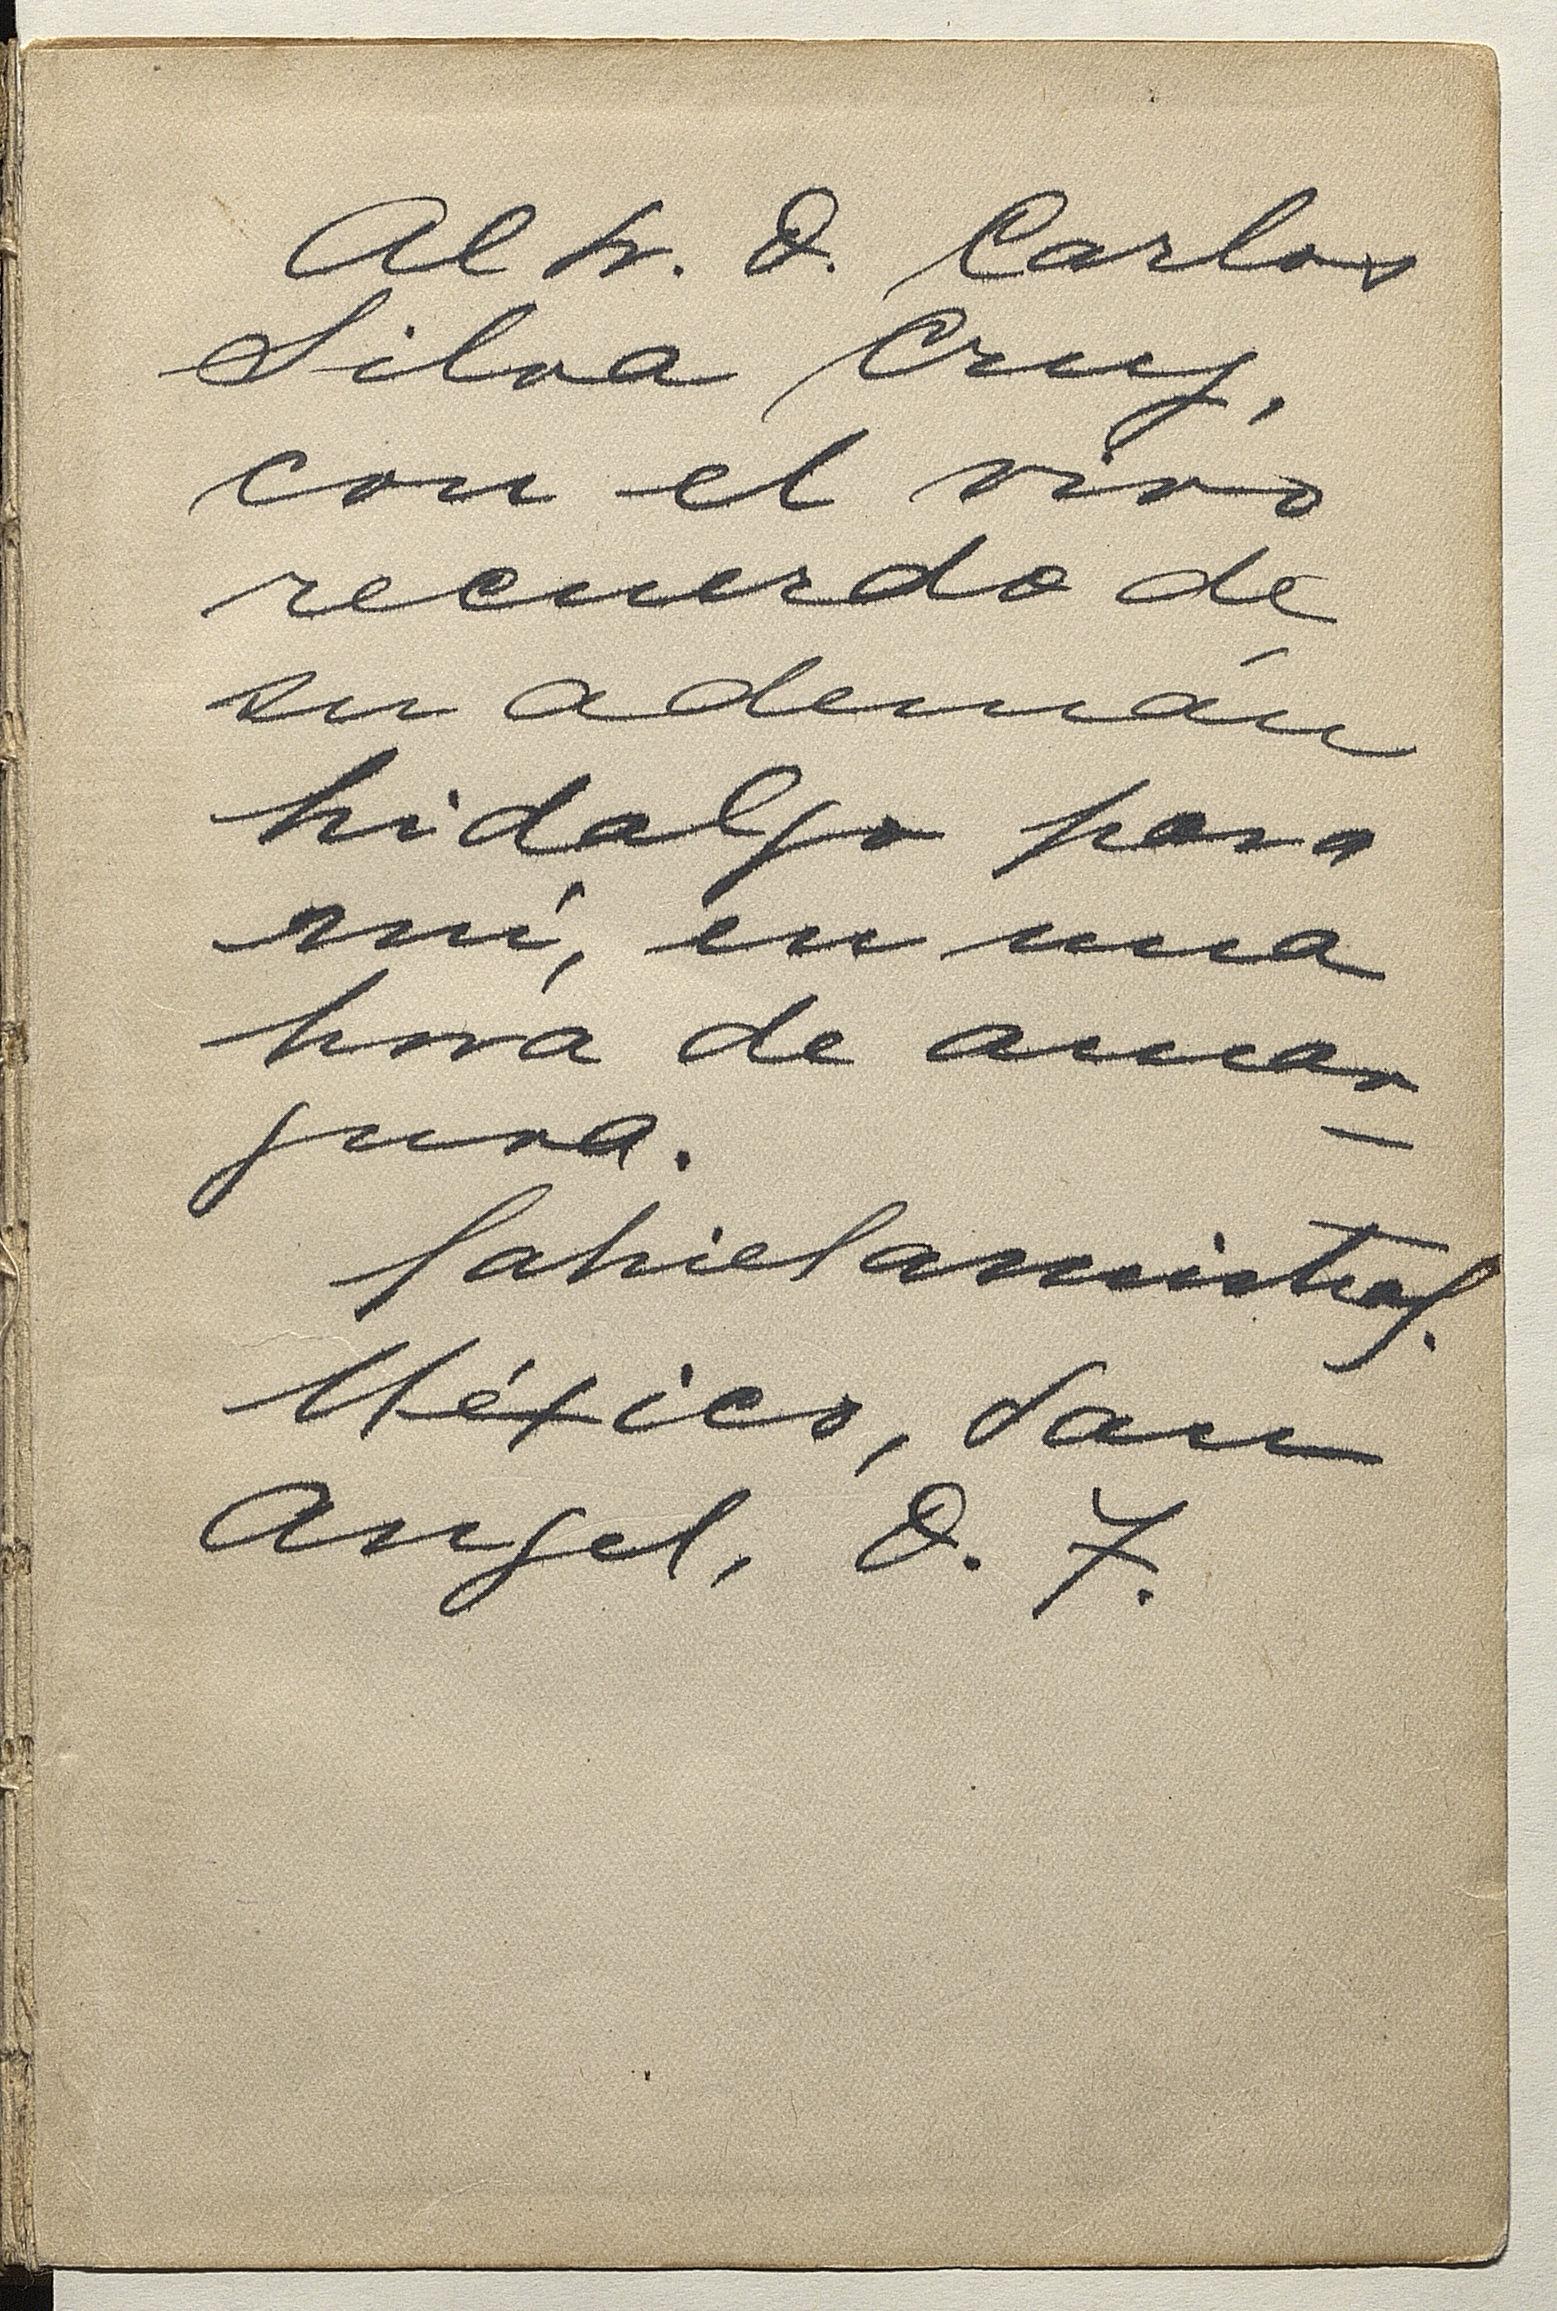 Al Sr. D. Carlos
Silva Cruz,
con el vivo
recuerdo de
su ademán
hidalgo para
mí, en una
hora de amar
gura. –
Gabriela Mistral.
México, San
Angel, D. F.